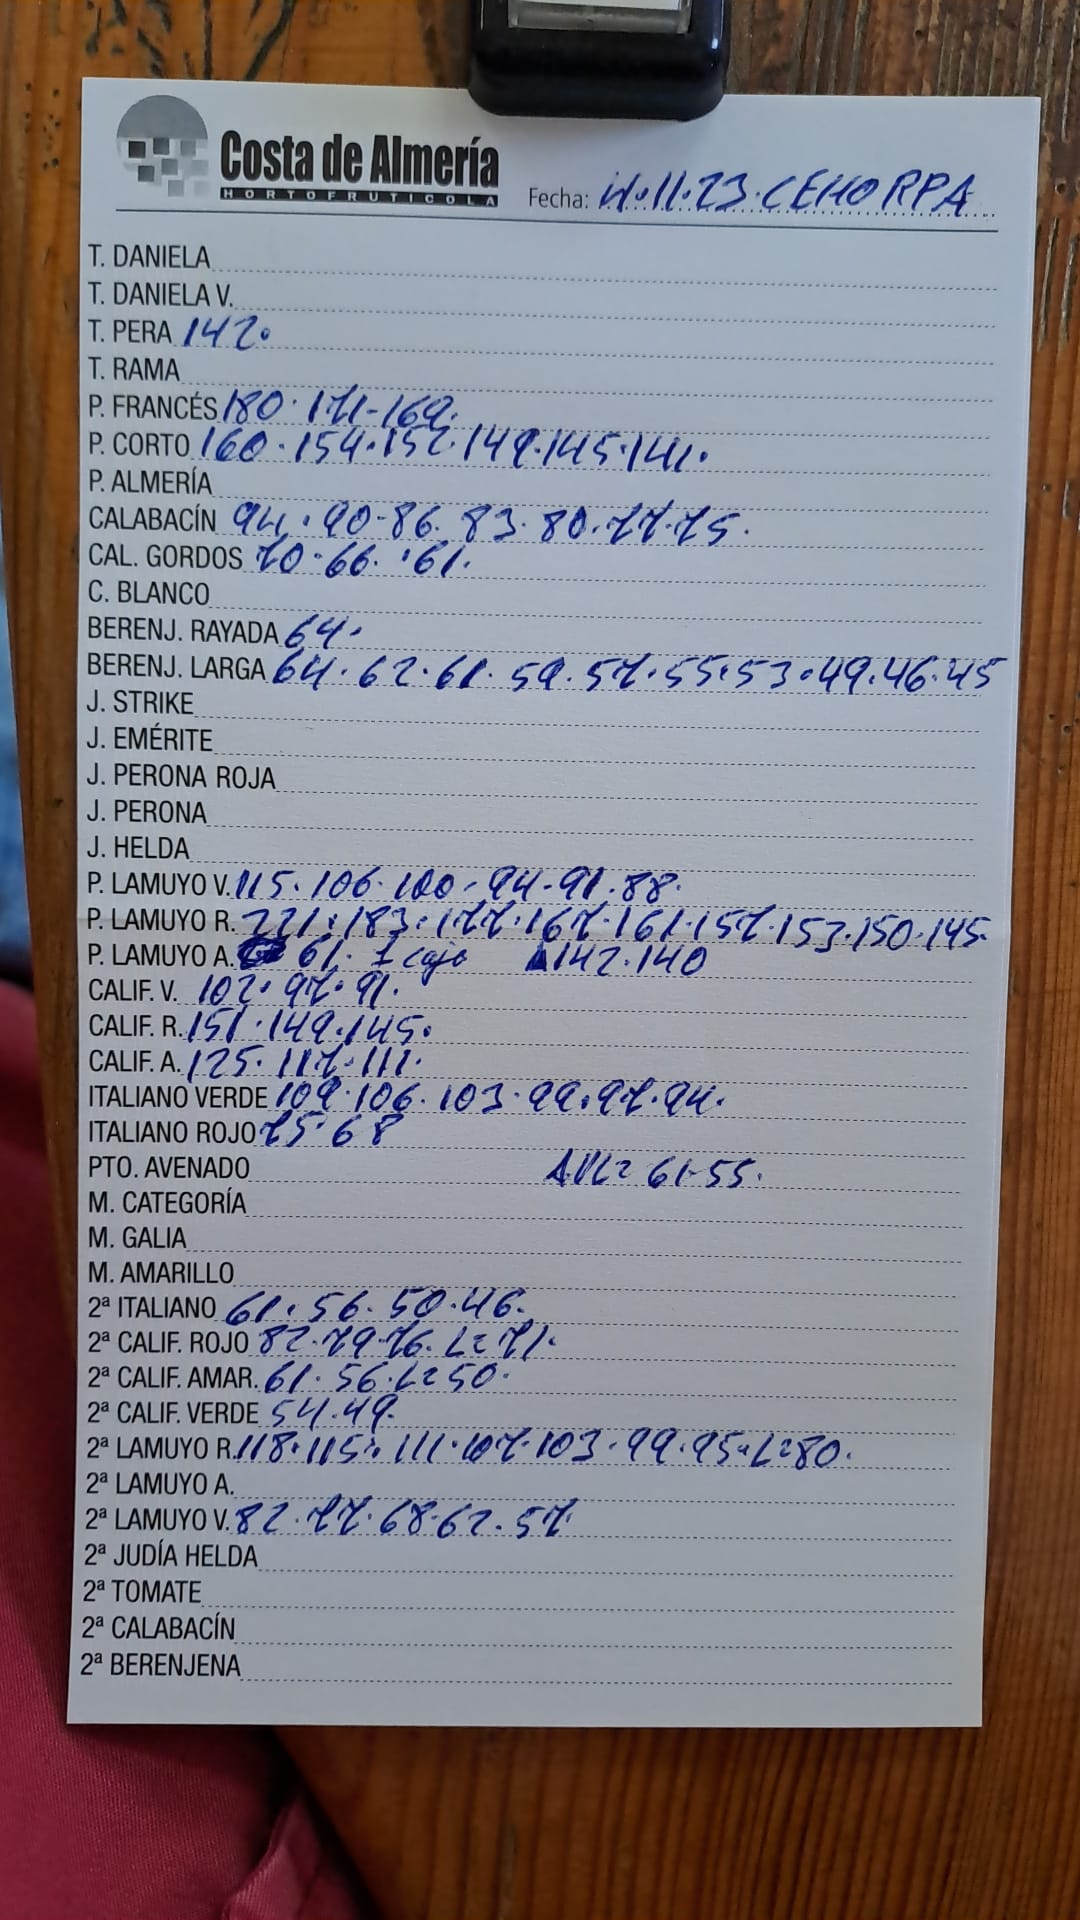 Costa de Almería
HORTOFRUTICOLA
Fecha: 4.11.23.CEHORPA
T. DANIELA
T. DANIELA V.
T. PERA 142.
T. RAMA
P. FRANCÉS 180.171-169.
P. CORTO 160.154.152.149.145.141.
P. ALMERÍA
CALABACÍN 94.90.86.83.80.77.75.
CAL. GORDOS 70.66.61.
C. BLANCO
BERENJ. RAYADA 64.
BERENJ. LARGA 64.62.61.59.57.55.53.49.46.45
J. STRIKE
J. EMÉRITE
J. PERONA ROJA
J. PERONA
J. HELDA
P. LAMUYO V. 115.106.100-94-91.88.
P. LAMUYO R. 221.183.177.167.161.157.153.150.145.
P. LAMUYO A. 61. 1 caja 142.140
CALIF. V. 102.97.91.
CALIF. R. 151.149.145.
CALIF. A. 125.117.111.
ITALIANO VERDE 109.106.103.99.97.94.
ITALIANO ROJO 75.68
PTO. AVENADO 61-55.
M. CATEGORÍA
M. GALIA
M. AMARILLO
2ª ITALIANO 61.56.50.46.
2ª CALIF. ROJO 82.79.76.L=71.
2ª CALIF. AMAR. 61.56.L=50.
2ª CALIF. VERDE 54.49.
2ª LAMUYO R. 118.115.111.107.103.99.95.L=80.
2ª LAMUYO A.
2ª LAMUYO V. 82.77.68.62.57
2ª JUDÍA HELDA
2ª TOMATE
2ª CALABACÍN
2ª BERENJENA